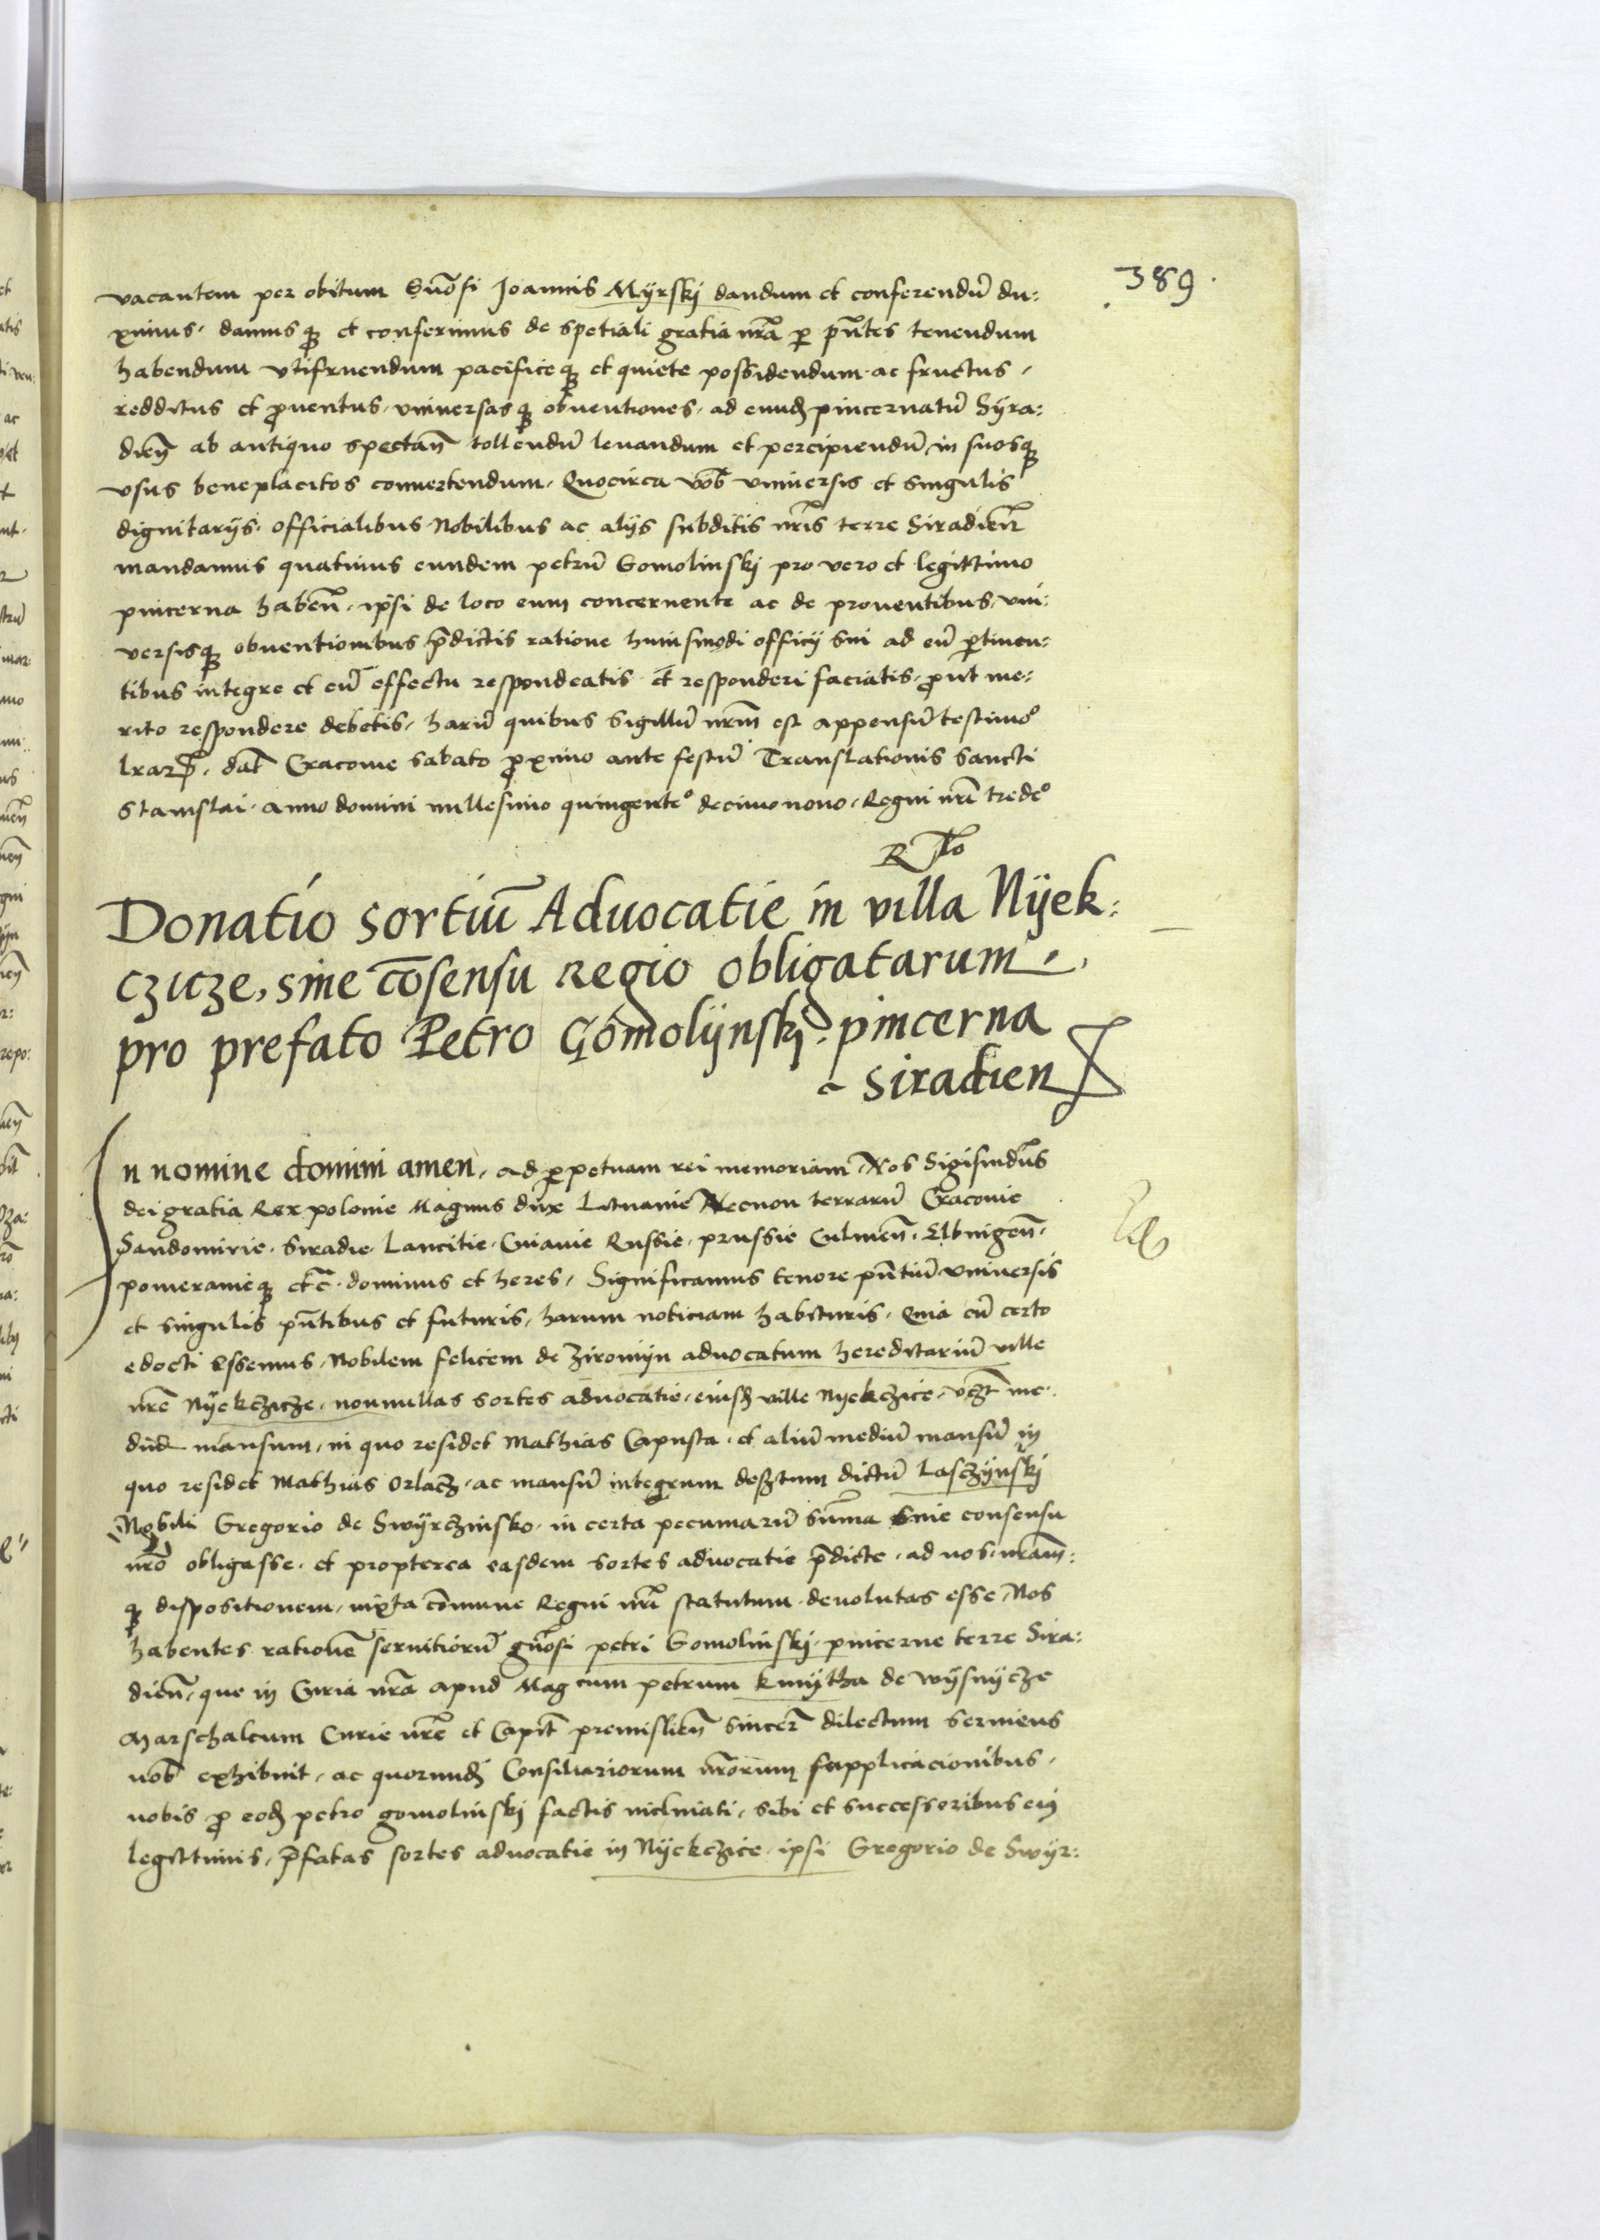 389
vacantem per obitum Gnosi Joannis Myrski dandum et conferendū du:
ximus. damusqʒ et conferimus de spetiali gratia nrā p pn̄tes tenendum
habendum utifruendum pacificeqʒ et quiete possidendum. ac fructus,
redditus et p̱ventus. universasqʒ obventiones. ad eundʒ pincernatū Syra:
dien̄ ab antiquo spectan̄ tollendū levandum et percipiendū, in suosqʒ
vsus beneplacitos convertendum. Quocirca vob̄ universis et singulis
dignitarijs. officialibus. Nobilibus ac alijs subditis nrīs terre Siradien̄
mandamus quatinus eundem petrū Gomolinski pro vero et legittimo
pincerna haben̄. ipsi de loco eum concernente ac de proventibus, uni:
versisqʒ obventionibus p̄dictis ratione huiusmodi officij sui ad eū ꝑtinen:
tibus integre et cū effectu respondeatis et responderi faciatis, p̱ut me:
rito respondere debetis, harū quibus sigillū nrm̄ est appensū testimoº
lrarꝝ. dat̄ Cracovie sabato p̱ximo ante festū Translationis sancti
Stanislai. Anno domini millesimo quingenteº decimo nono. Regni nrī tredeº
R
Donatio sortiū Advocatie in villa Nyek:
czicze, sine cōsensu Regio obligatarum.
pro prefato Petro Gomolynski. pincerna
Siradien
In nomine domini amen. Ad ꝑpetuam rei memoriam Nos Sigismdūs
dei gratia Rex polonie Magnus dux Lituanie Necnon terrarū Cracovie
Sandomirie. Siradie. Lancitie. Cuiavie Russie. prussie Culmen̄. Elbingen̄.
pomeranieqʒ etc̄. dominus et heres. Significamus tenore pn̄tiū universis
et singulis pn̄tibus et futuris, harum noticiam habituris. Quia cū certo
edocti essemus. Nobilem felicem de Ziromyn advocatum hereditariū ville
nrē Nyekczicze. nonnullas sortes advocatie. eiusdʒ ville Nyekczice. vcʒt me:
diū mansum, in quo residet Mathias Capusta. et aliū mediū mansū in
quo residet Mathias Orlacz. ac mansū integrum desʒtum dictū Lasczynski
Nobili Gregorio de Swyrczinsko. in certa pecuniarū sūma sine consensu
nrō obligasse. et propterea easdem sortes advocatie p̄dicte. ad nos. nram̄:
qʒ dispositionem, iuxta cōmune Regni nrī statutum. devolutas esse, Nos
habentes rationē servitiorū gn̄osi petri Gomolinski. pincerne terre Sira:
dien̄, que in Curia nrā apud Mag cum petrum kmytha de Wysnycze
Marschalcum Curie nrē et Capit̄ premislien̄ sincer̄ dilectum serviens
nob̄ exhibuit. ac quorundʒ Consiliariorum nrōrum supplicacionibus.
nobis p̱ eodʒ petro gomolinski factis inclinati, sibi et successoribus eiꝰ
legittimis, p̄fatas sortes advocatie in Nyekczice. ipsi Gregorio de Swyr: